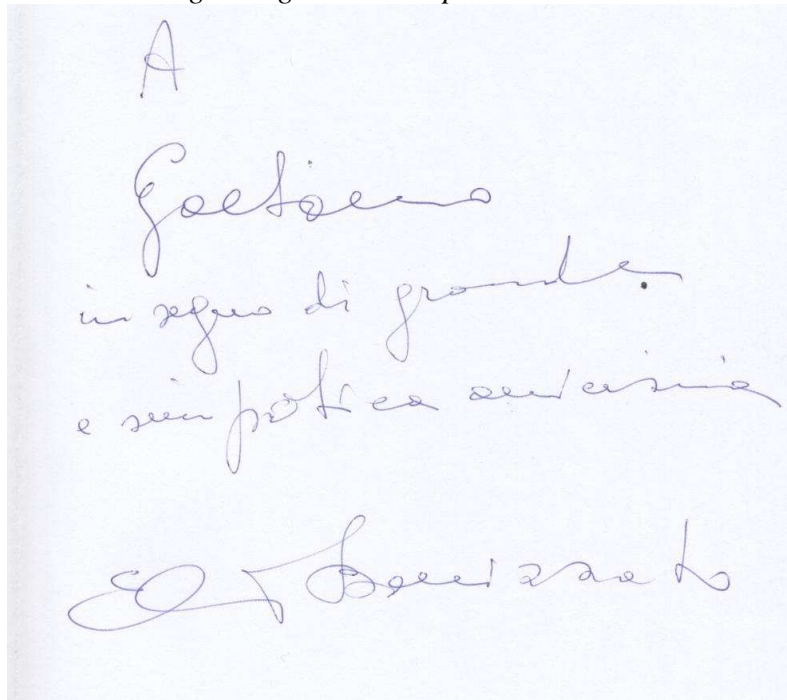 A
Gaetano
in segno di grande
e simpatica amicizia